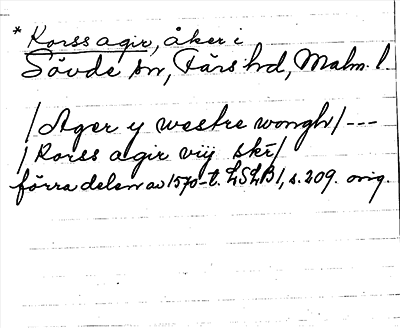 * Korss agir, åker i
Sövde sn, Färs hd, Malm. l.
/Ager y westre wongh/ ---
/Korss agir vij skr/
förra delen av 1570-t. LSLB 1, s. 209. orig.